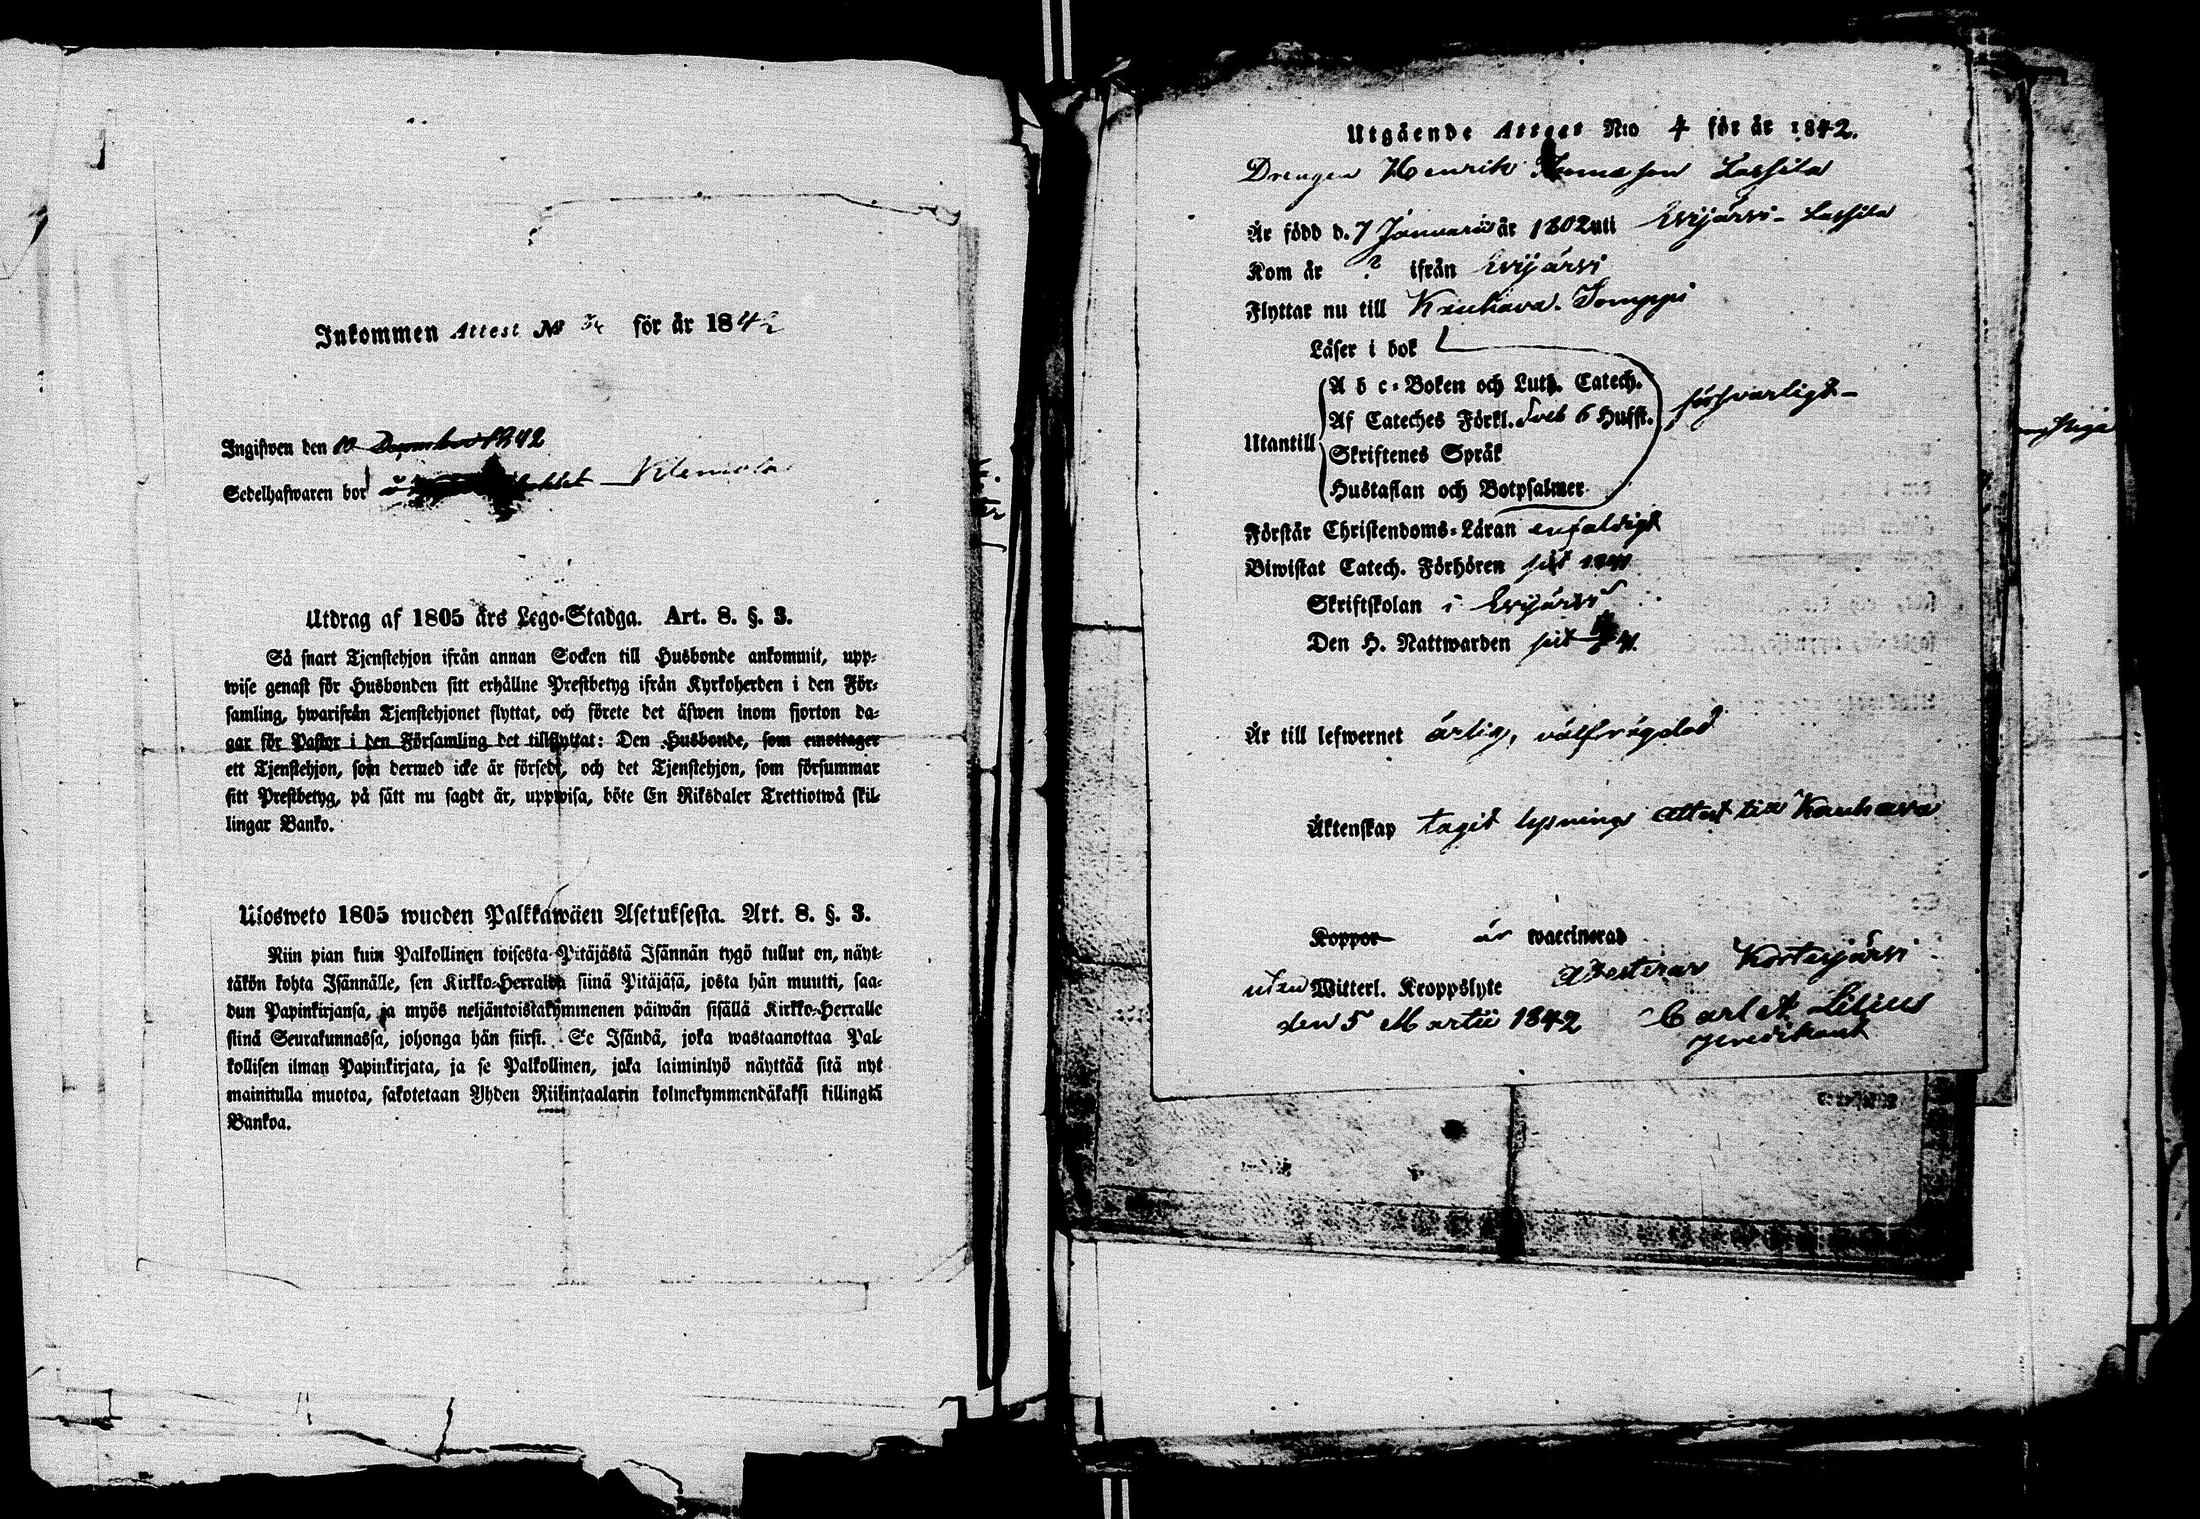 Inkommen Attest № för år 1842
Ingifwen den 10 December 1842
Sedelhafwaren bor Klemola
Utdrag af 1805 års Lego-Stadga. Art. 8. §. 3.
Så snart Tjenstehjon ifrån annan Socken till Husbonde ankommit, upp-
wise genast för Husbonden sitt erhållne Prestbetyg ifrån Kyrkoherden i den För-
samling, hwarifrån Tjenstehjonet flyttat, och förete det äfwen inom fjorton da-
gar för Pastor i den Församling det tillflyttat: Den Husbonde, som emottager
ett Tjenstehjon, som dermed icke är försedt, och det Tjenstehjon, som försummar
sitt Prestbetyg, på sätt nu sagdt är, uppwisa, böte En Riksdaler Trettiotwå skil-
lingar Banko.
Ulosweto 1805 wuoden Palkkawäen Asetuksesta. Art. 8. §. 3.
Niin pian kuin Palkollinen toisesta Pitäjästä Isännän tygö tullut on, näyt-
täkön kohta Isännälle, sen Kirkko-Herralda siinä Pitäjäsä, josta hän muutti, saa-
dun Papinkirjansa, ja myös neljäntoistakymmenen päiwän sisällä Kirkko-Herralle
siinä Seurakunnassa, johonga hän siirsi. Se Isändä, joka wastaanottaa Pal-
kollisen ilman Papinkirjata, ja se Palkollinen, joka laiminlyö näyttää sitä nyt
mainitulla muotoa, sakotetaan Yhden Riikintaalarin kolmekymmendäkaksi killingiä
Bankoa.
Utgående Attest N:o 4 för år 1842.
Drengen Henrik son Lassila
Är född d. 7 Januarii år 1802 uti Evijärvi - Lassila
Kom år ? ifrån Evijärvi
Flyttar nu till Kauhava Jomppi
Läser i bok
A b c-Boken och Luth. Catech.
Af Cateches Förkl. Sveb 6 Hufst. försvarligt -
Utantill
Skriftenes Språk
Hustaflan och Botpsalmer
Förstår Christendoms-Läran enfaldigt
Biwistat Catech. Förhören sist 1841
Skriftskolan i Evijärvi
Den H. Nattwarden sist
Är till lefwernet ärlig, välfrägdad
Äktenskap tagit lysnings attest till Kauhava
Koppor är waccinerad
utan Witterl. Kroppslyte attesterar Kortesjärvi
den 5 Martii 1842 Carl A Lilius
predikant